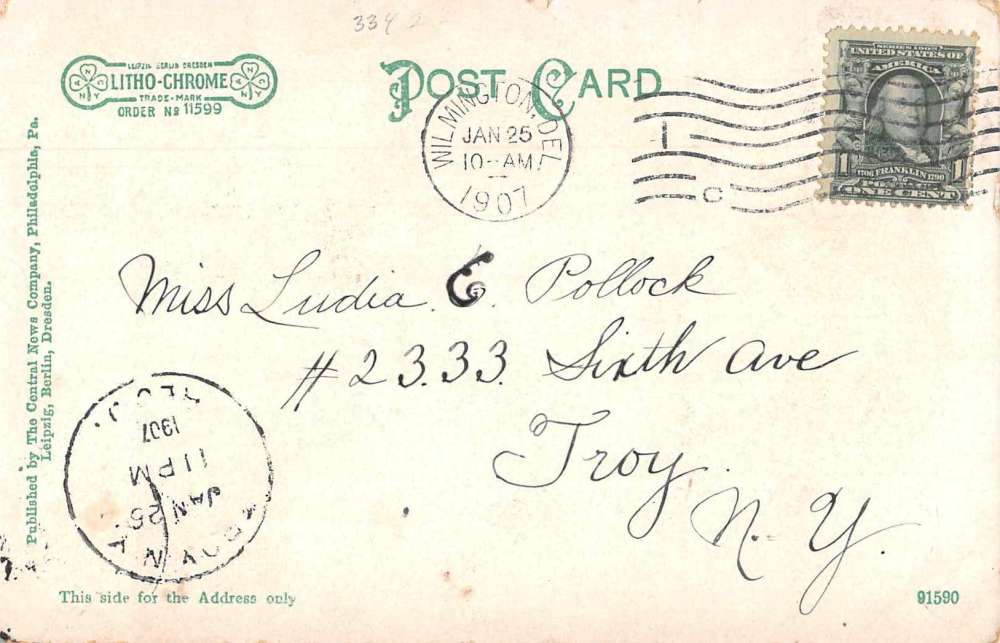 334 2
LEIPZIG BERLIN DRESDEN
LITHO-CHROME
TRADE-MARK
ORDER No 11599
POST CARD
WILMINGTON, DEL.
JAN 25
10-AM
1907
1
C
SERIES 1902
UNITED STATES OF
AMERICA
1 1706 FRANKLIN 1790 1
POSTAGE
ONE CENT
Miss Ludia. E. Pollock
#2333. Sixth Ave
Troy.
N. Y.
Published by The Central News Company, Philadelphia, Pa.
Leipzig, Berlin, Dresden.
TROY N.Y.
JAN 25
11 PM
1907
REC'D.
This side for the Address only
91590